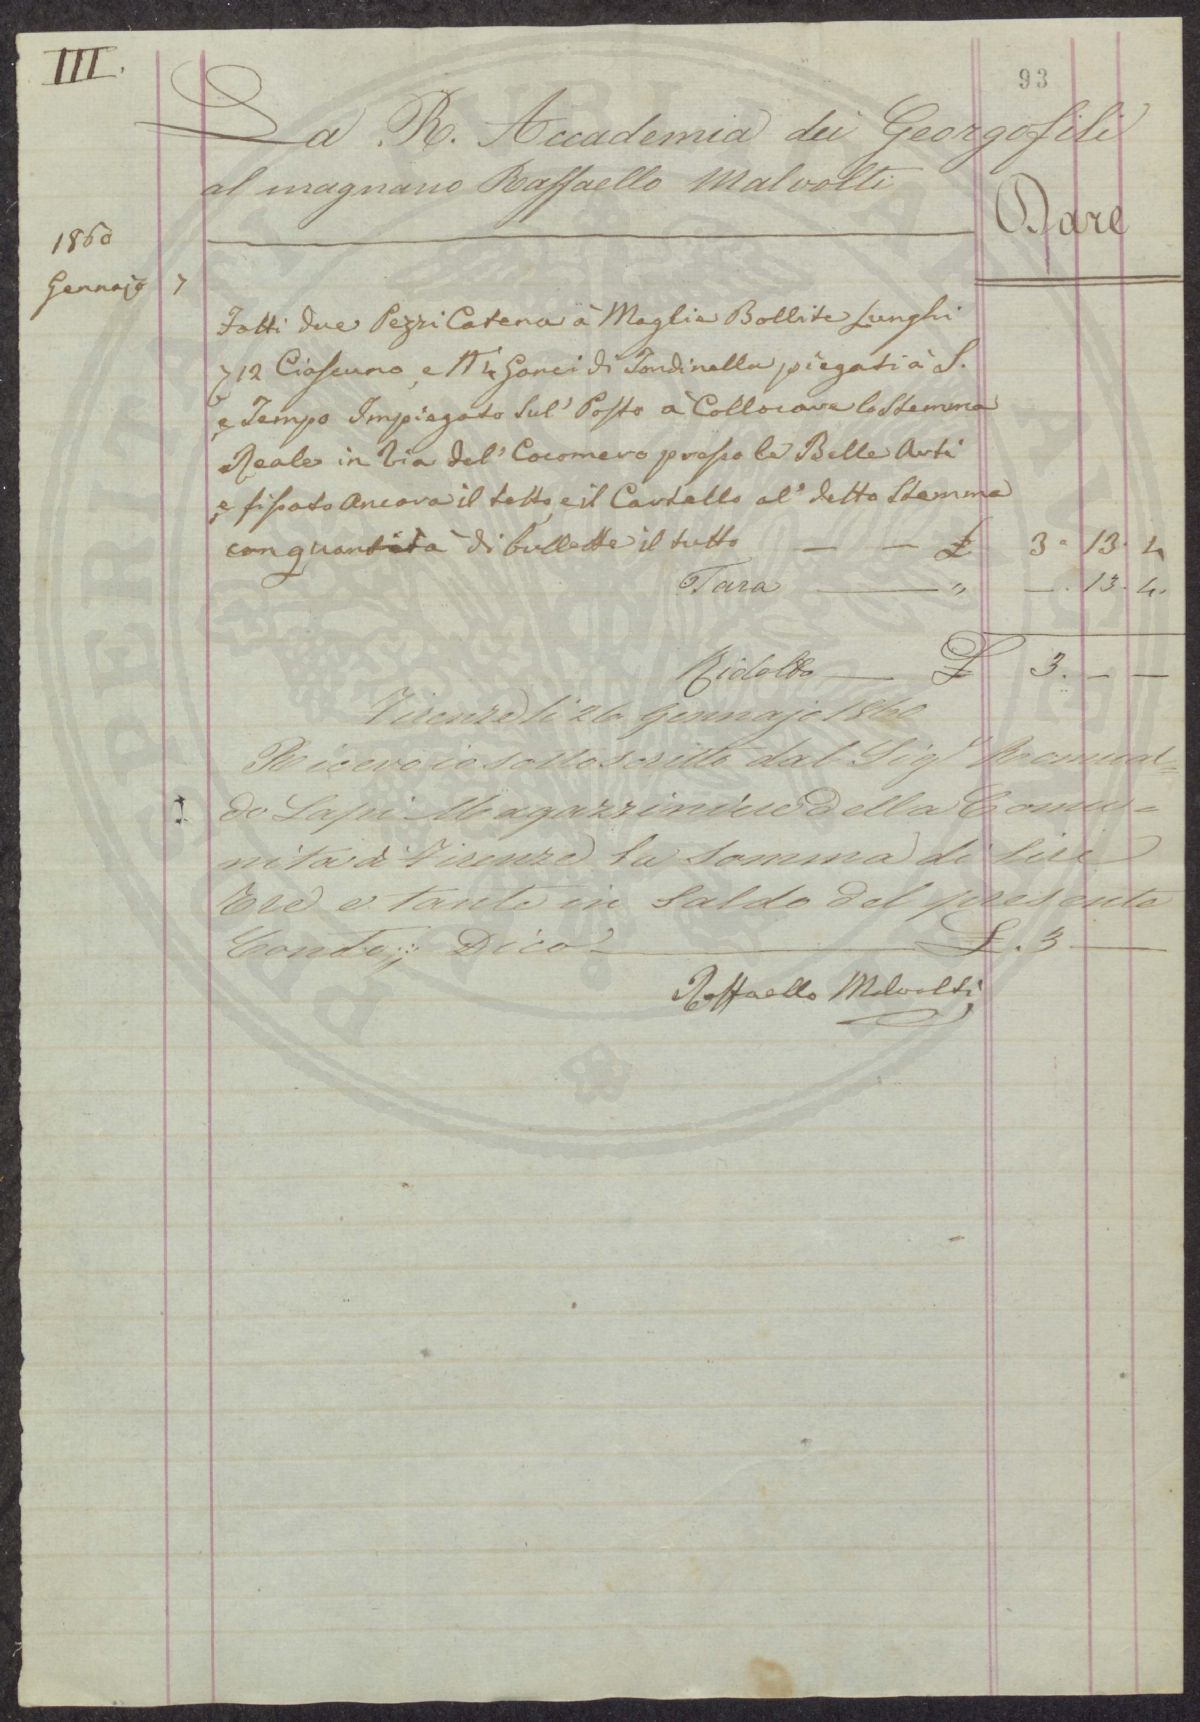 III.
93
La R. Accademia dei Georgofili
al magnano Raffaello Malvolti
Dare
1860
Gennajo 7
Fatti due Pezzi Catena à Maglie Bollite Lunghi
712 Ciascuno, e N 4 Ganci di Tondinella piegati à S.
e Tempo Impiegato sul' Posto a Collocare lo Stemma
Reale in Via del' Cocomero presso le Belle Arti
e fissato Ancora il tetto, e il Cartello al' detto Stemma
con quantità di bullette il tutto — — £ 3. 13. 4
Tara — " —. 13. 4.
Ridotto — £ 3. — —
Firenze li 26 Gennajo 1860
Ricevo io sottoscritto dal Sigr Romual=
do Lapi Magazziniere della Comu=
nità di Firenze la somma di Lire
Tre e tante in Saldo del presente
Conto; Dico — £. 3 —
Raffaello Malvolti